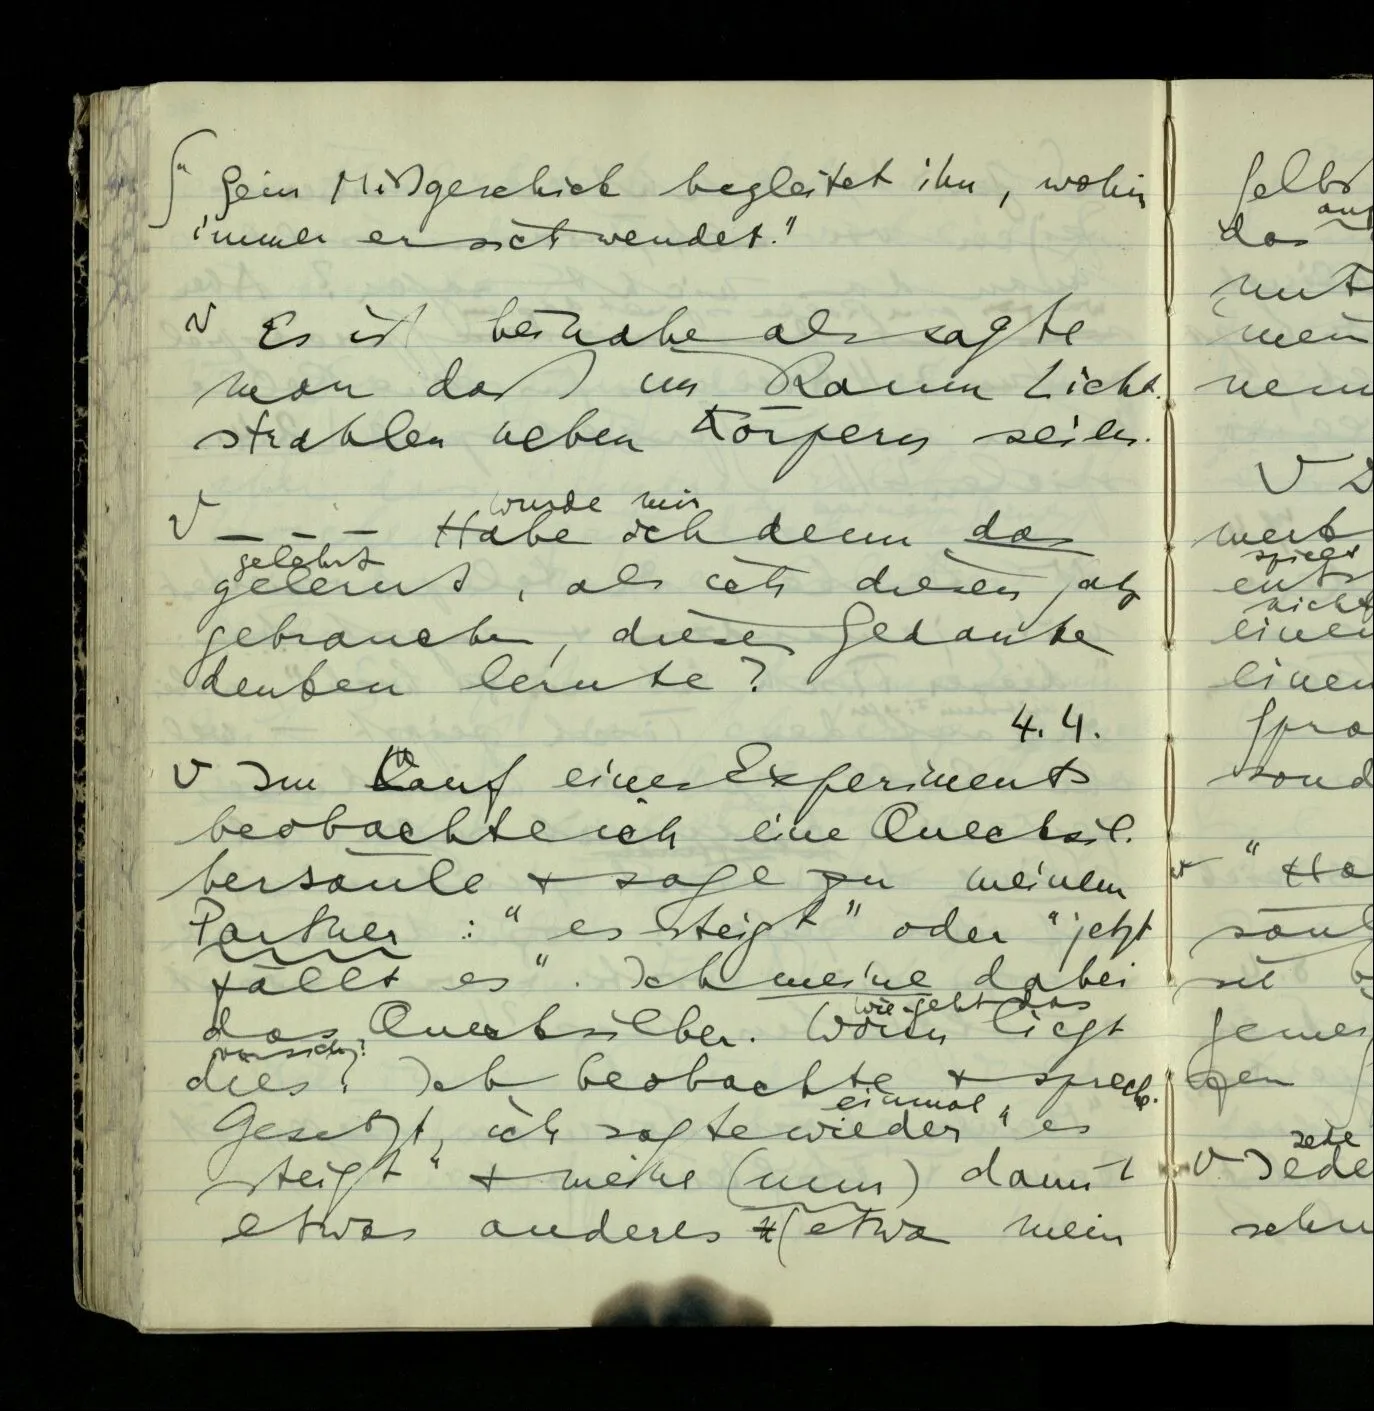 ∫ " Sein Mißgeschick begleitet ihn, wohin
immer er sich wendet."
v Es ist beinahe als sagte
man daß im Raum Licht
strahlen neben Körpern seien.
wurde mir
v – – – Habe ich denn das
gelehrt
gelernt, als ich diesen Satz
gebrauchen, diesen Gedanken
denken lernte?
4.4.
v Im Lauf eines Experiments
beobachte ich eine Quecksil-
bersäule + sage zu meinem
Partner : "es steigt" oder "jetzt
fällt es". Ich meine dabei
wie geht das
das Quecksilber. Worin liegt
vor sich?
dies? Ich beobachte + spreche.
einmal
Gesetzt, ich sagte wieder "es
steigt" + meine (nun) damit
etwas anderes (etwa mein
Selbs
das
mit
mein
nem
v
merk
spiegt
nicht
einen
einen
Spra
sond
v " Ha
säul
sie
gen
v Jede